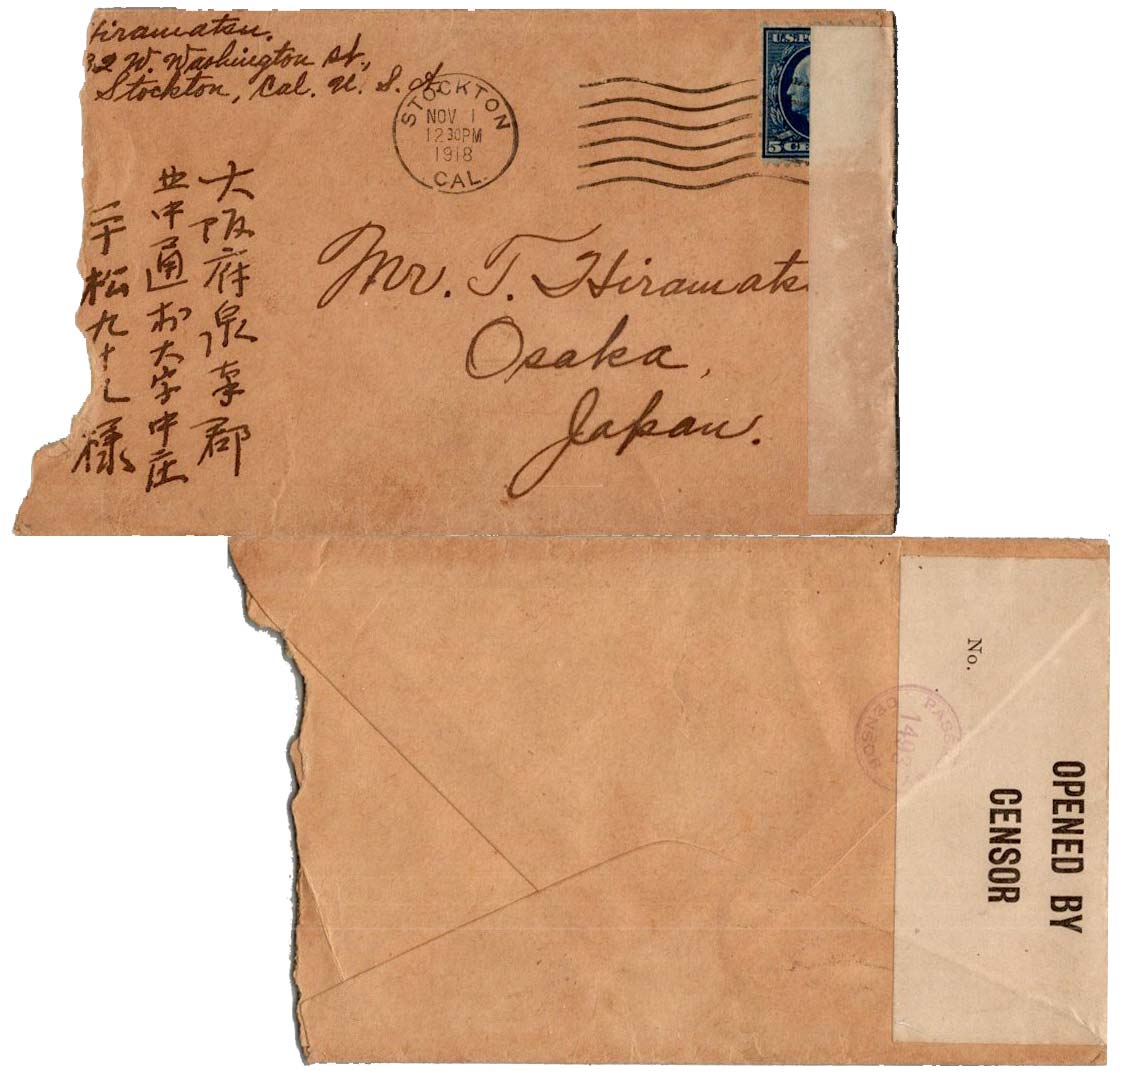 Hiramatsu.
32 W. Washington St.,
Stockton, Cal. U. S. A.
STOCKTON
NOV 1
12 30 PM
1918
CAL.
U.S. PO
5 CE
大阪府泉南郡
北中通村大字中庄
平松九十 様
Mr. T. Hiramats
Osaka,
Japan.
No.
PASS
CENSOR
OPENED BY
CENSOR